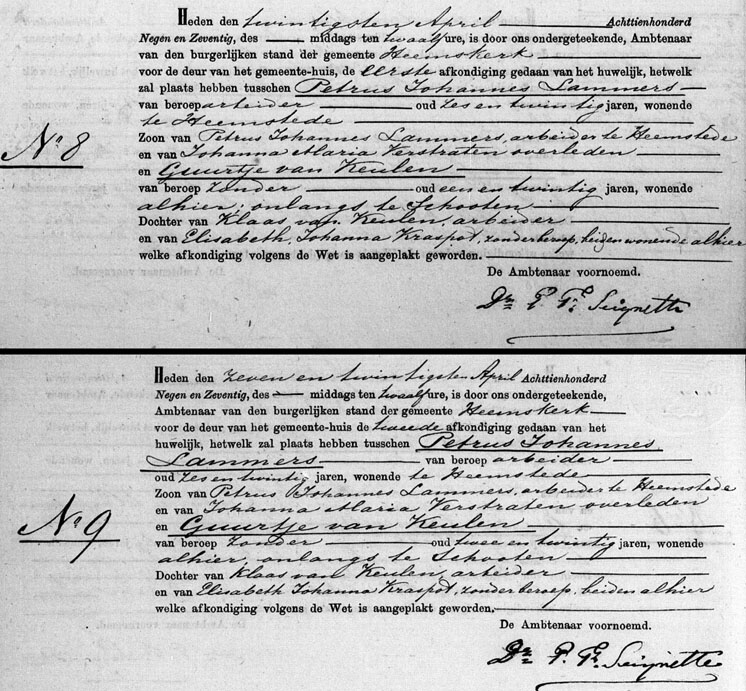 Heden den twintigsten April Achttienhonderd
Negen en Zeventig, des middags ten twaalf ure, is door ons ondergeteekende, Ambtenaar
van den burgerlijken stand der gemeente Heemskerk
voor de deur van het gemeente-huis, de eerste afkondiging gedaan van het huwelijk, hetwelk
zal plaats hebben tusschen Petrus Johannes Lammers
van beroep arbeider oud zes en twintig jaren, wonende
te Heemstede
Zoon van Petrus Johannes Lammers, arbeider te Heemstede
No 8
en van Johanna Maria Verstraten overleden
en Guurtje van Keulen
van beroep zonder oud een en twintig jaren, wonende
alhier, onlangs te Schooten
Dochter van Klaas van Keulen, arbeider
en van Elisabeth Johanna Kraspot, zonder beroep, beiden wonende alhier
welke afkondiging volgens de Wet is aangeplakt geworden.
De Ambtenaar voornoemd.
Dr. P. Fr. Seignette
Heden den zeven en twintigsten April Achttienhonderd
Negen en Zeventig, des middags ten twaalf ure, is door ons ondergeteekende,
Ambtenaar van den burgerlijken stand der gemeente Heemskerk
voor de deur van het gemeente-huis de tweede afkondiging gedaan van het
huwelijk, hetwelk zal plaats hebben tusschen Petrus Johannes
Lammers van beroep arbeider
oud zes en twintig jaren, wonende te Heemstede
Zoon van Petrus Johannes Lammers, arbeider te Heemstede
en van Johanna Maria Verstraten overleden
No 9
en Guurtje van Keulen
van beroep zonder oud twee en twintig jaren, wonende
alhier, onlangs te Schooten
Dochter van Klaas van Keulen, arbeider
en van Elisabeth Johanna Kraspot, zonder beroep, beiden alhier
welke afkondiging volgens de Wet is aangeplakt geworden.
De Ambtenaar voornoemd.
Dr. P. Fr. Seignette